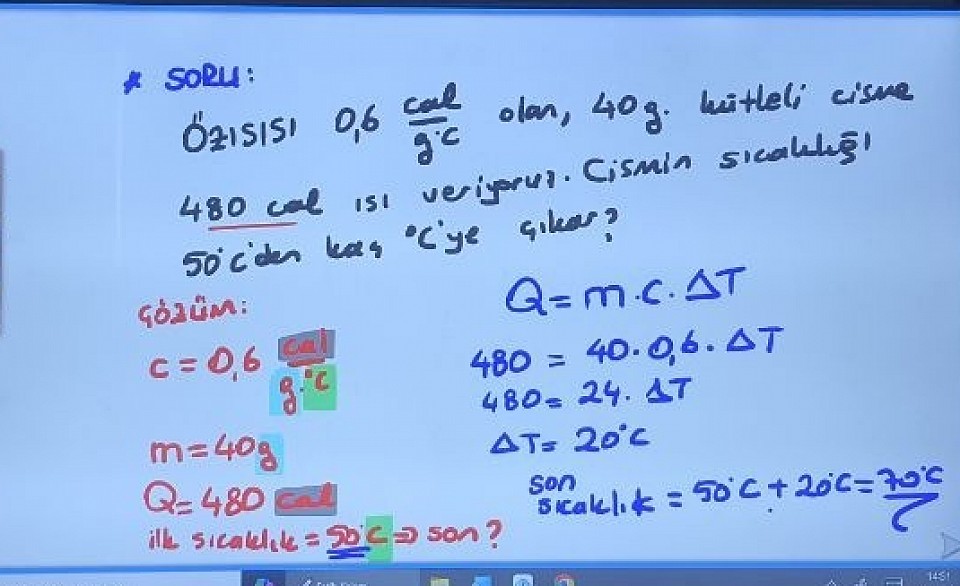 * SORU:
ÖZISISI 0,6 cal/g°C olan, 40g. kütleli cisme
480 cal ısı veriyoruz. Cismin sıcaklığı
50°C'den kaç °C'ye çıkar?
ÇÖZÜM:
c = 0,6 cal/g.°C
m = 40g
Q = 480 cal
ilk sıcaklık = 50°C ⇒ son?
Q = m.c.ΔT
480 = 40.0,6.ΔT
480 = 24.ΔT
ΔT = 20°C
son
sıcaklık = 50°C + 20°C = 70°C
14:51